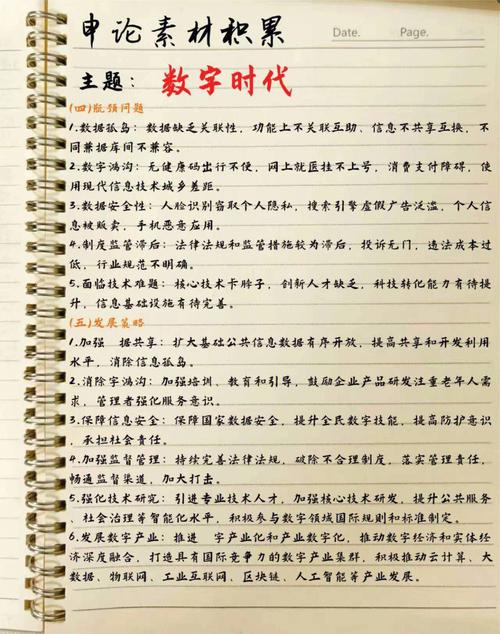 申论素材积累
Date.
Page.
主题：数字时代
(四)瓶颈问题
1.数据孤岛：数据缺乏关联性，功能上不关联互助、信息不共享互换，不
同兼据库间不兼容。
2.数字鸿沟：无健康码出行不便，网上就医挂不上号，消费支付障碍，使
用现代信息技术城乡差距。
3.数据安全性：人脸识别窃取个人隐私，搜索引擎虚假广告泛滥，个人信
息被贩卖，手机恶意应用。
4.制度监管滞后：法律法规和监管措施较为滞后，投诉无门，违法成本过
低，行业规范不明确。
5.面临技术难题：核心技术卡脖子，创新人才缺乏，科技转化能力有待提
升，信息基础设施有待完善。
(五)发展策略
1.加强 据共享：扩大基础公共信息数据有序开放，提高共享和开发利用
水平，消除信息孤岛。
2.消除字鸿沟：加强培训、教育和引导，鼓励企业产品研发注重老年人需
求，管理者强化服务意识。
3.保障信息安全：保障国家数据安全，提升全民数字技能，提高防护意识
，承担社会责任。
4.加强监督管理：持续完善法律法规，破除不合理制度，落实管理责任，
畅通监督渠道，加大打击。
5.强化技术研究：引进专业技术人才，加强核心技术研发，提升公共服务
、社会治理等智能化水平，积极参与数字领域国际规则和标准制定。
6.发展数字产业：推进 字产业化和产业数字化，推动数字经济和实体经
济深度融合，打造具有国际竞争力的数字产业集群，积极推动云计算、大
数据、物联网、工业互联网、区块链、人工智能等产业发展。